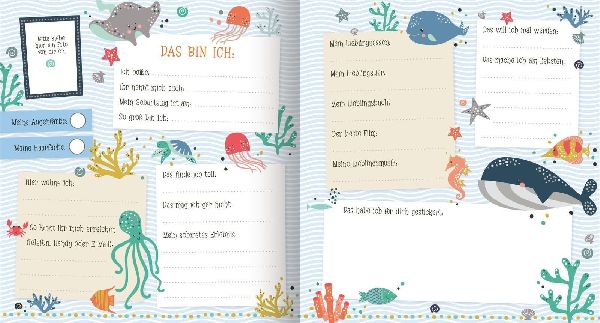 Bitte klebe
hier ein Foto
von dir ein.
DAS BIN ICH:
Ich heiße:
Ihr nennt mich auch:
Mein Geburtstag ist am:
So groß bin ich:
Meine Augenfarbe:
Meine Haarfarbe:
Hier wohne ich:
So könnt ihr mich erreichen:
Telefon, Handy oder E-Mail:
Das finde ich toll:
Das mag ich gar nicht:
Mein schönstes Erlebnis:
Mein Lieblingsessen:
Mein Lieblingstier:
Mein Lieblingsbuch:
Der beste Film:
Meine Lieblingsmusik:
Das will ich mal werden:
Das mache ich am liebsten:
Das habe ich für dich gestickert: